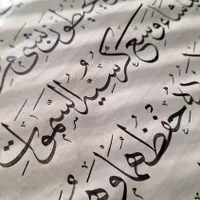 يحيطون بشيء من
شاء وسع كرسيه السموات
حفظهما وهو